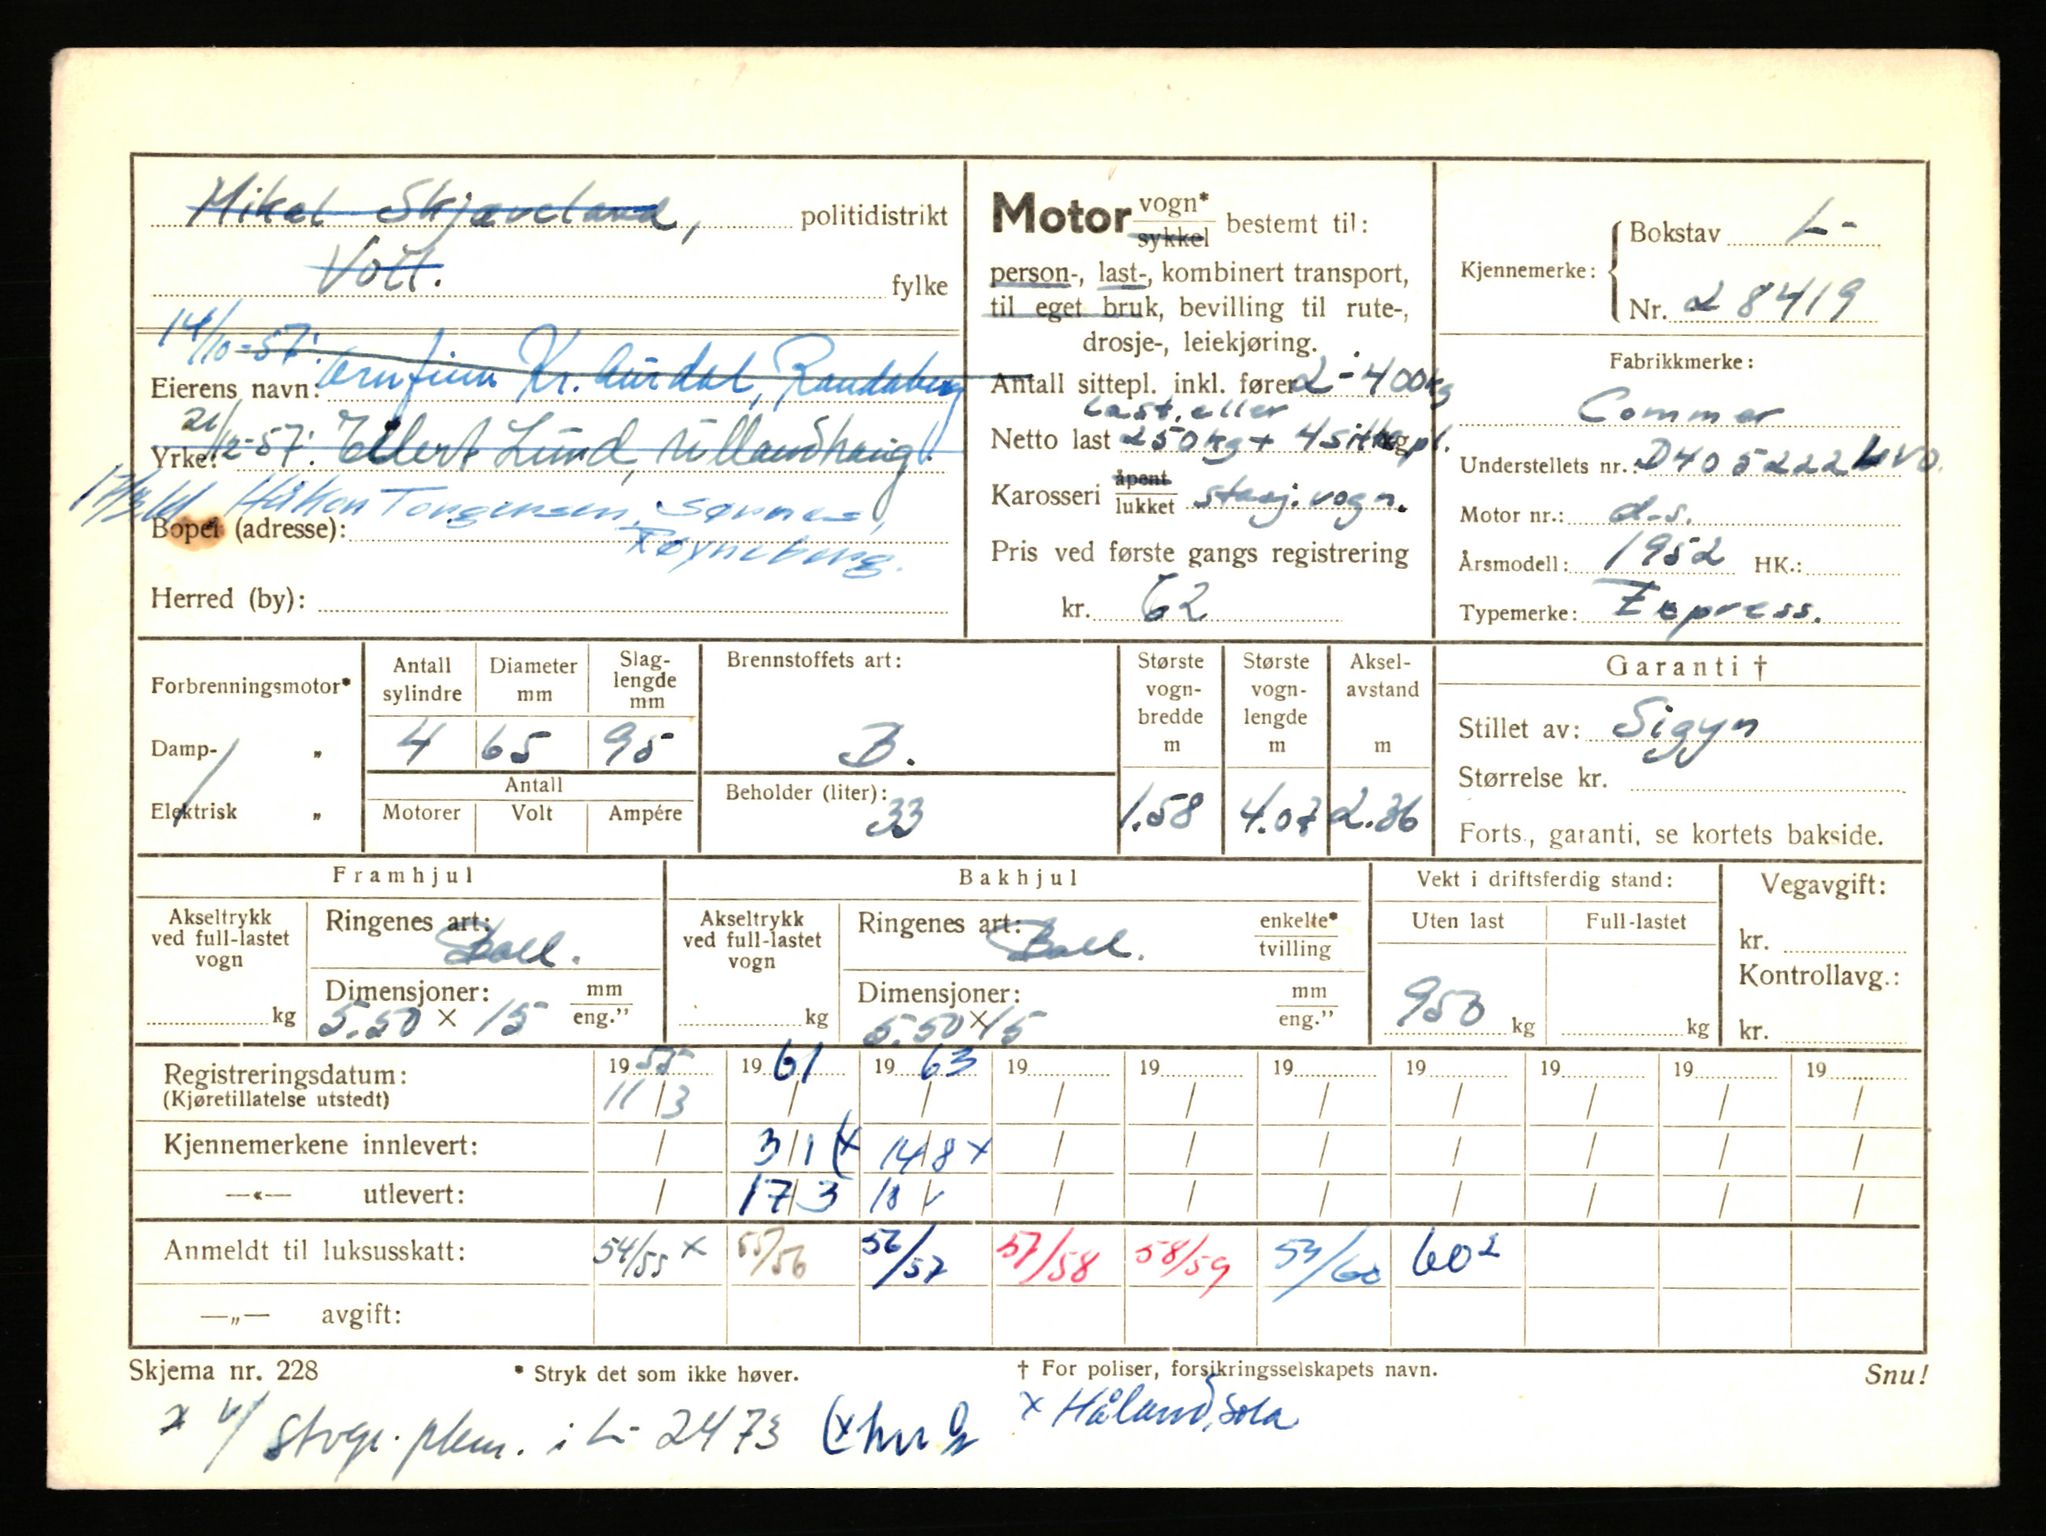 Mikal Skjæveland, politidistrikt
Voll. fylke
14/10-57: Arnfinn Kr. Aurdal, Randaberg
Eierens navn:
21/12-57: Ellert Lund, Ullandhaug.
Yrke:
17/3-61 Håkon Torgersen, Sømme,
Bopel (adresse): Røyneberg.
Herred (by):
Motor vogn* sykkel bestemt til:
person-, last-, kombinert transport,
til eget bruk, bevilling til rute-,
drosje-, leiekjøring.
Antall sittepl. inkl. fører 2-400kg
last, eller
Netto last 250 kg + 4 sitte kg pl.
Karosseri åpent lukket stasj.vogn.
Pris ved første gangs registrering
kr. 62
Kjennemerke: Bokstav L-
Nr. 28419
Fabrikkmerke:
Commer
Understellets nr.: D405222LVO.
Motor nr.: d.s.
Årsmodell: 1952 HK.:
Typemerke: Express.
Forbrenningsmotor*
Damp- „
Elektrisk „
Antall sylindre 4
Diameter mm 65
Slaglengde mm 95
Antall
Motorer Volt Ampére
Brennstoffets art:
B.
Beholder (liter):
33
Største vognbredde m 1.58
Største vognlengde m 4.07
Akselavstand m 2.36
Garanti †
Stillet av: Sigyn
Størrelse kr.
Forts., garanti, se kortets bakside.
Framhjul
Akseltrykk ved full-lastet vogn kg
Ringenes art: Ball.
Dimensjoner: mm eng."
5.50 x 15
Bakhjul
Akseltrykk ved full-lastet vogn kg
Ringenes art: Ball. enkelte* tvilling
Dimensjoner: mm eng."
5.50 x 15
Vekt i driftsferdig stand:
Uten last Full-lastet
953 kg kg
Vegavgift:
kr.
Kontrollavg.:
kr.
Registreringsdatum: 1955 1961 1963 19 19 19 19 19 19 19
(Kjøretillatelse utstedt) 11/3 / / / / / / / / /
Kjennemerkene innlevert: / 3/1 (x 14/8 x / / / / / / /
—«— utlevert: / 17/3 18 / / / / / / /
Anmeldt til luksusskatt: 54/55 x 55/56 56/57 57/58 58/59 59/60 60²
—„— avgift:
Skjema nr. 228 * Stryk det som ikke høver. † For poliser, forsikringsselskapets navn. Snu!
i L-2473 x Håland, Sola